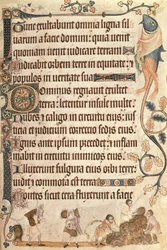 Tunc exultabunt omnia ligna sil
uarum a facie domini: quia uenit
quoniam uenit iudicare terram
Iudicabit orbem terre in equitate: et
populos in ueritate sua
Dominus regnauit exultet
terra: letentur insule multe.
Nubes et caligo in circuitu eius: iusti
cia et iudicium correctio sedis eius.
Ignis ante ipsum precedet: et inflam
mabit in circuitu inimicos eius.
Illuxerunt fulgura eius orbi terre:
uidit et commota est terra
Montes sicut cera fluxerunt a facie